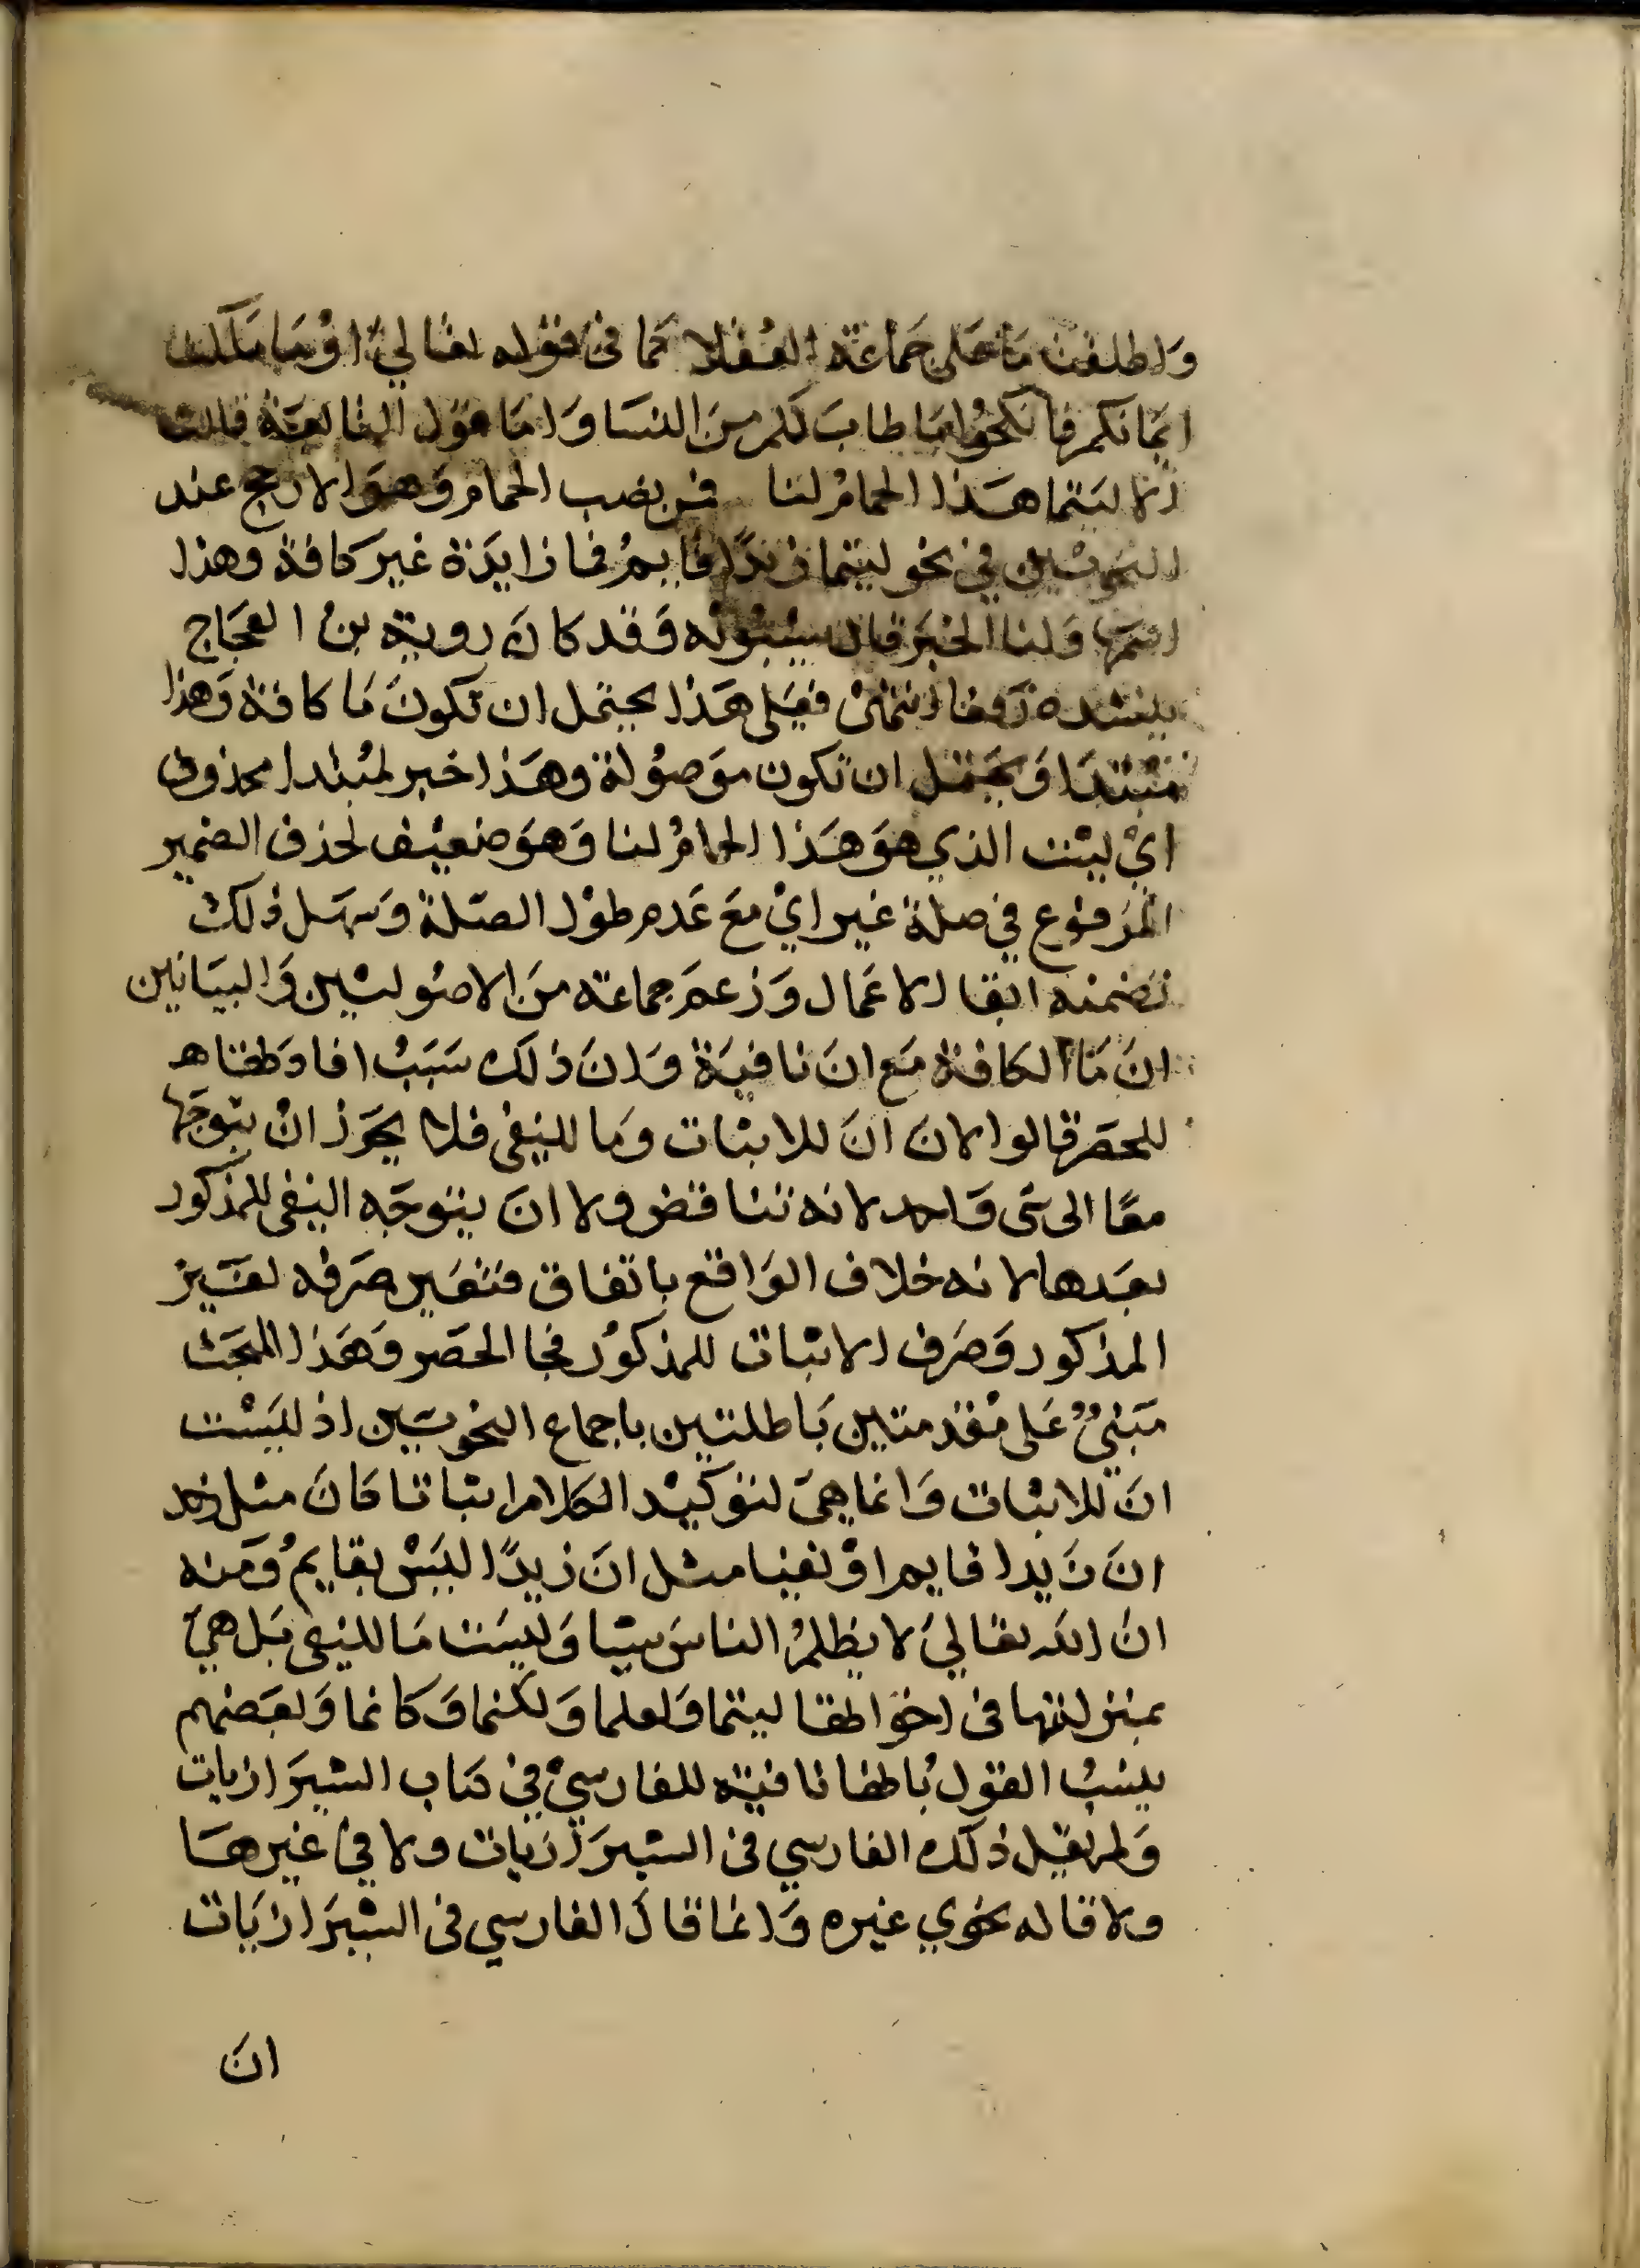 واطلقت ما على جماعة العقلا كما في قوله تعالى او ما ملكت
ايمانكم فانكحوا ما طاب لكم من النسا واما قول النابغة قالت
الا ليتما هذا الحمام لنا فمن نصب الحمام وهو الارجح عند
النحويين في نحو ليتما زيدًا قايم فما زايدة غير كافة وهذا
اسمها ولنا الخبر قال سيبويه وقد كان روبة بن العجاج
ينشده رفعا انتهى فعلى هذا يحتمل ان تكون ما كافة وهذا
مبتدا ويحتمل ان تكون موصولة وهذا خبر لمبتدا محذوف
اي ليت الذي هو هذا الحمام لنا وهو ضعيف لحذف الضمير
المرفوع في صلة غير اي مع عدم طول الصلة وسهل ذلك
تضمنه ابقا الاعمال وزعم جماعة من الاصوليين والبيانين
ان ما الكافة مع ان نافية وان ذلك سبب افادتها
للحصر قالوا لان ان للاثبات وما للنفي فلا يجوز ان يتوجها
معًا الى شى واحد لانه تناقض ولا ان يتوجه النفي للمذكور
بعدها لانه خلاف الواقع باتفاق فتعين صرفه لغير
المذكور وصرف الاثبات للمذكور فجا الحصر وهذا البحث
مبنيٌ على مقدمتين باطلتين باجماع النحويين اذ ليست
ان للاثبات وانما هي لتوكيد الكلام اثباتا كان مثل
ان زيدا قايم او نفيا مثل ان زيدًا ليس بقايم ومنه
ان الله تعالى لا يظلم الناس شيا وليست ما للنفي بل هي
بمنزلتها في اخواتها ليتما ولعلما ولكنما وكانما وبعضهم
ينسب القول بانها نافية للفارسي في كتاب الشيرازيات
ولم يقل ذلك الفارسي في الشيرازيات ولا في غيرها
ولا قاله نحوي غيره وانما قال الفارسي في الشيرازيات
ان